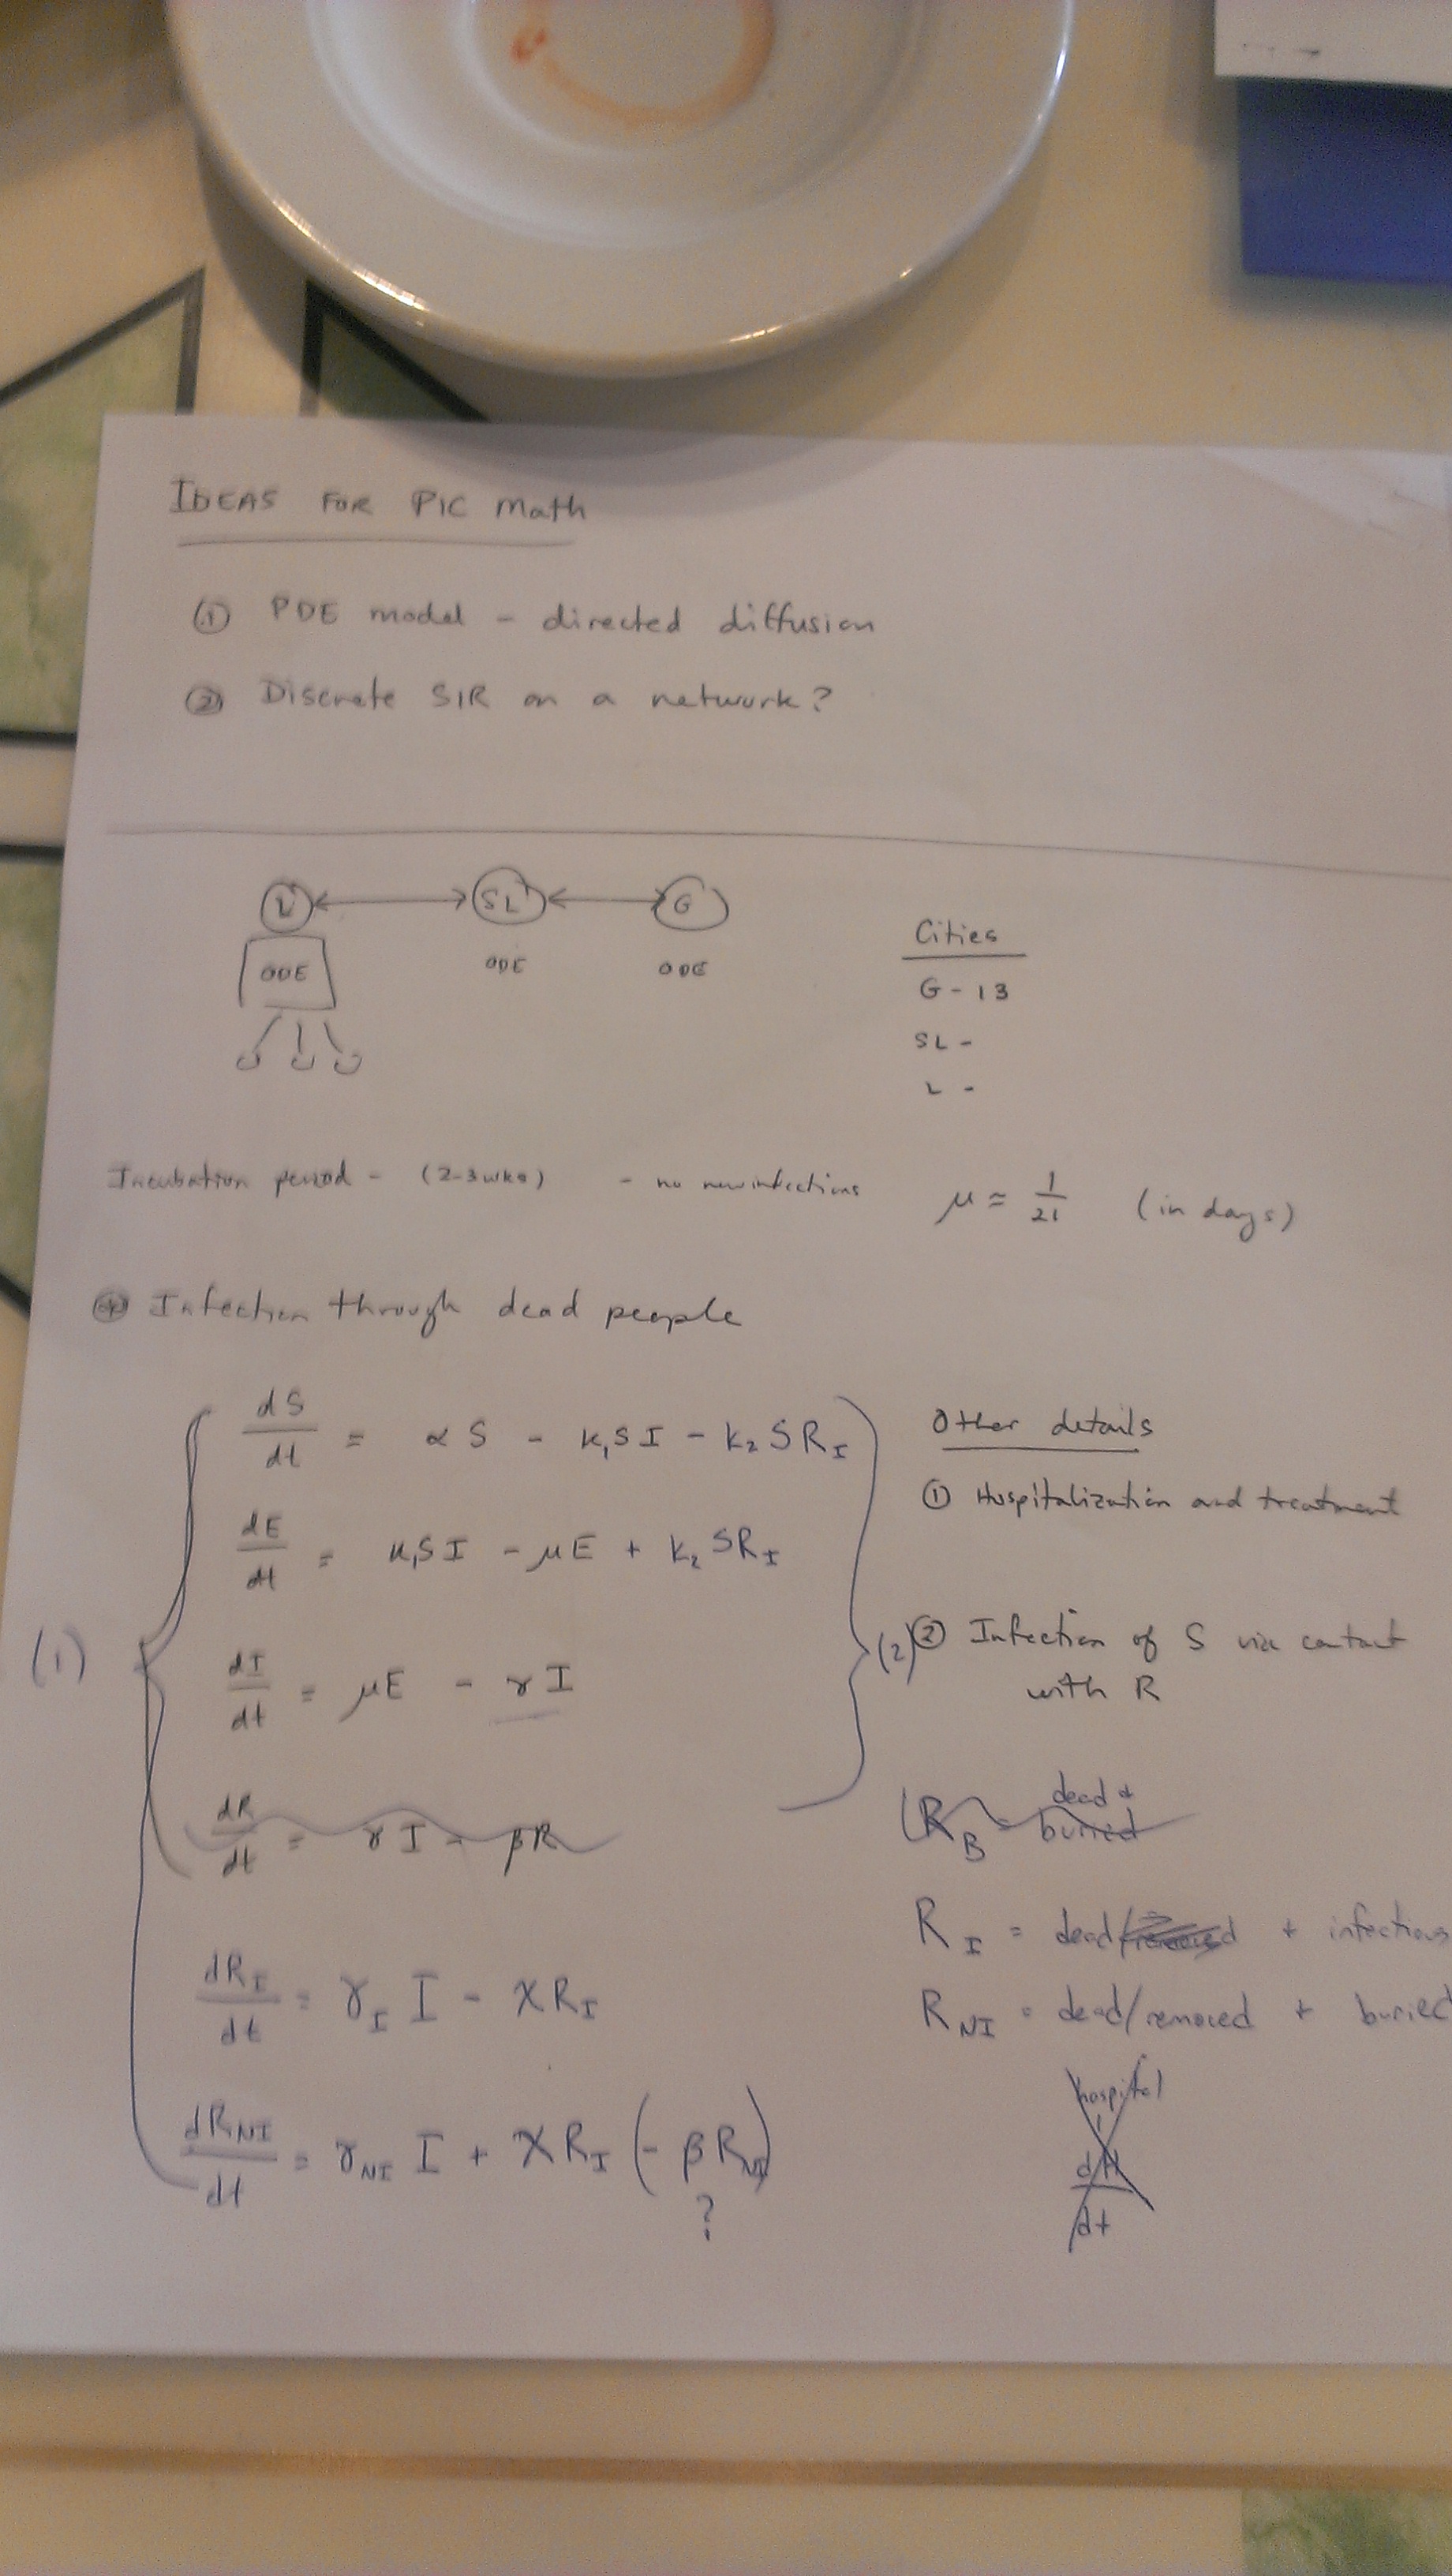 IDEAS FOR PIC Math
① PDE model - directed diffusion
② Discrete SIR on a network?
L SL G
ODE ODE ODE
Cities
G - 13
SL -
L -
Incubation period - (2-3 wks) - no new infections μ ≈ 1/21 (in days)
Infection through dead people
dS/dt = αS - k₁SI - k₂SR_I
dE/dt = k₁SI - μE + k₂SR_I
(1)
dI/dt = μE - γI
dR/dt = γI - βR
dR_I/dt = γ_I I - χR_I
dR_NI/dt = γ_NI I + χR_I (- βR_NI)
?
Other details
① Hospitalization and treatment
(2) ② Infection of S via contact
with R
R_B = dead + buried
R_I = dead/ + infectious
R_NI = dead/removed + buried
hospital
dH/dt